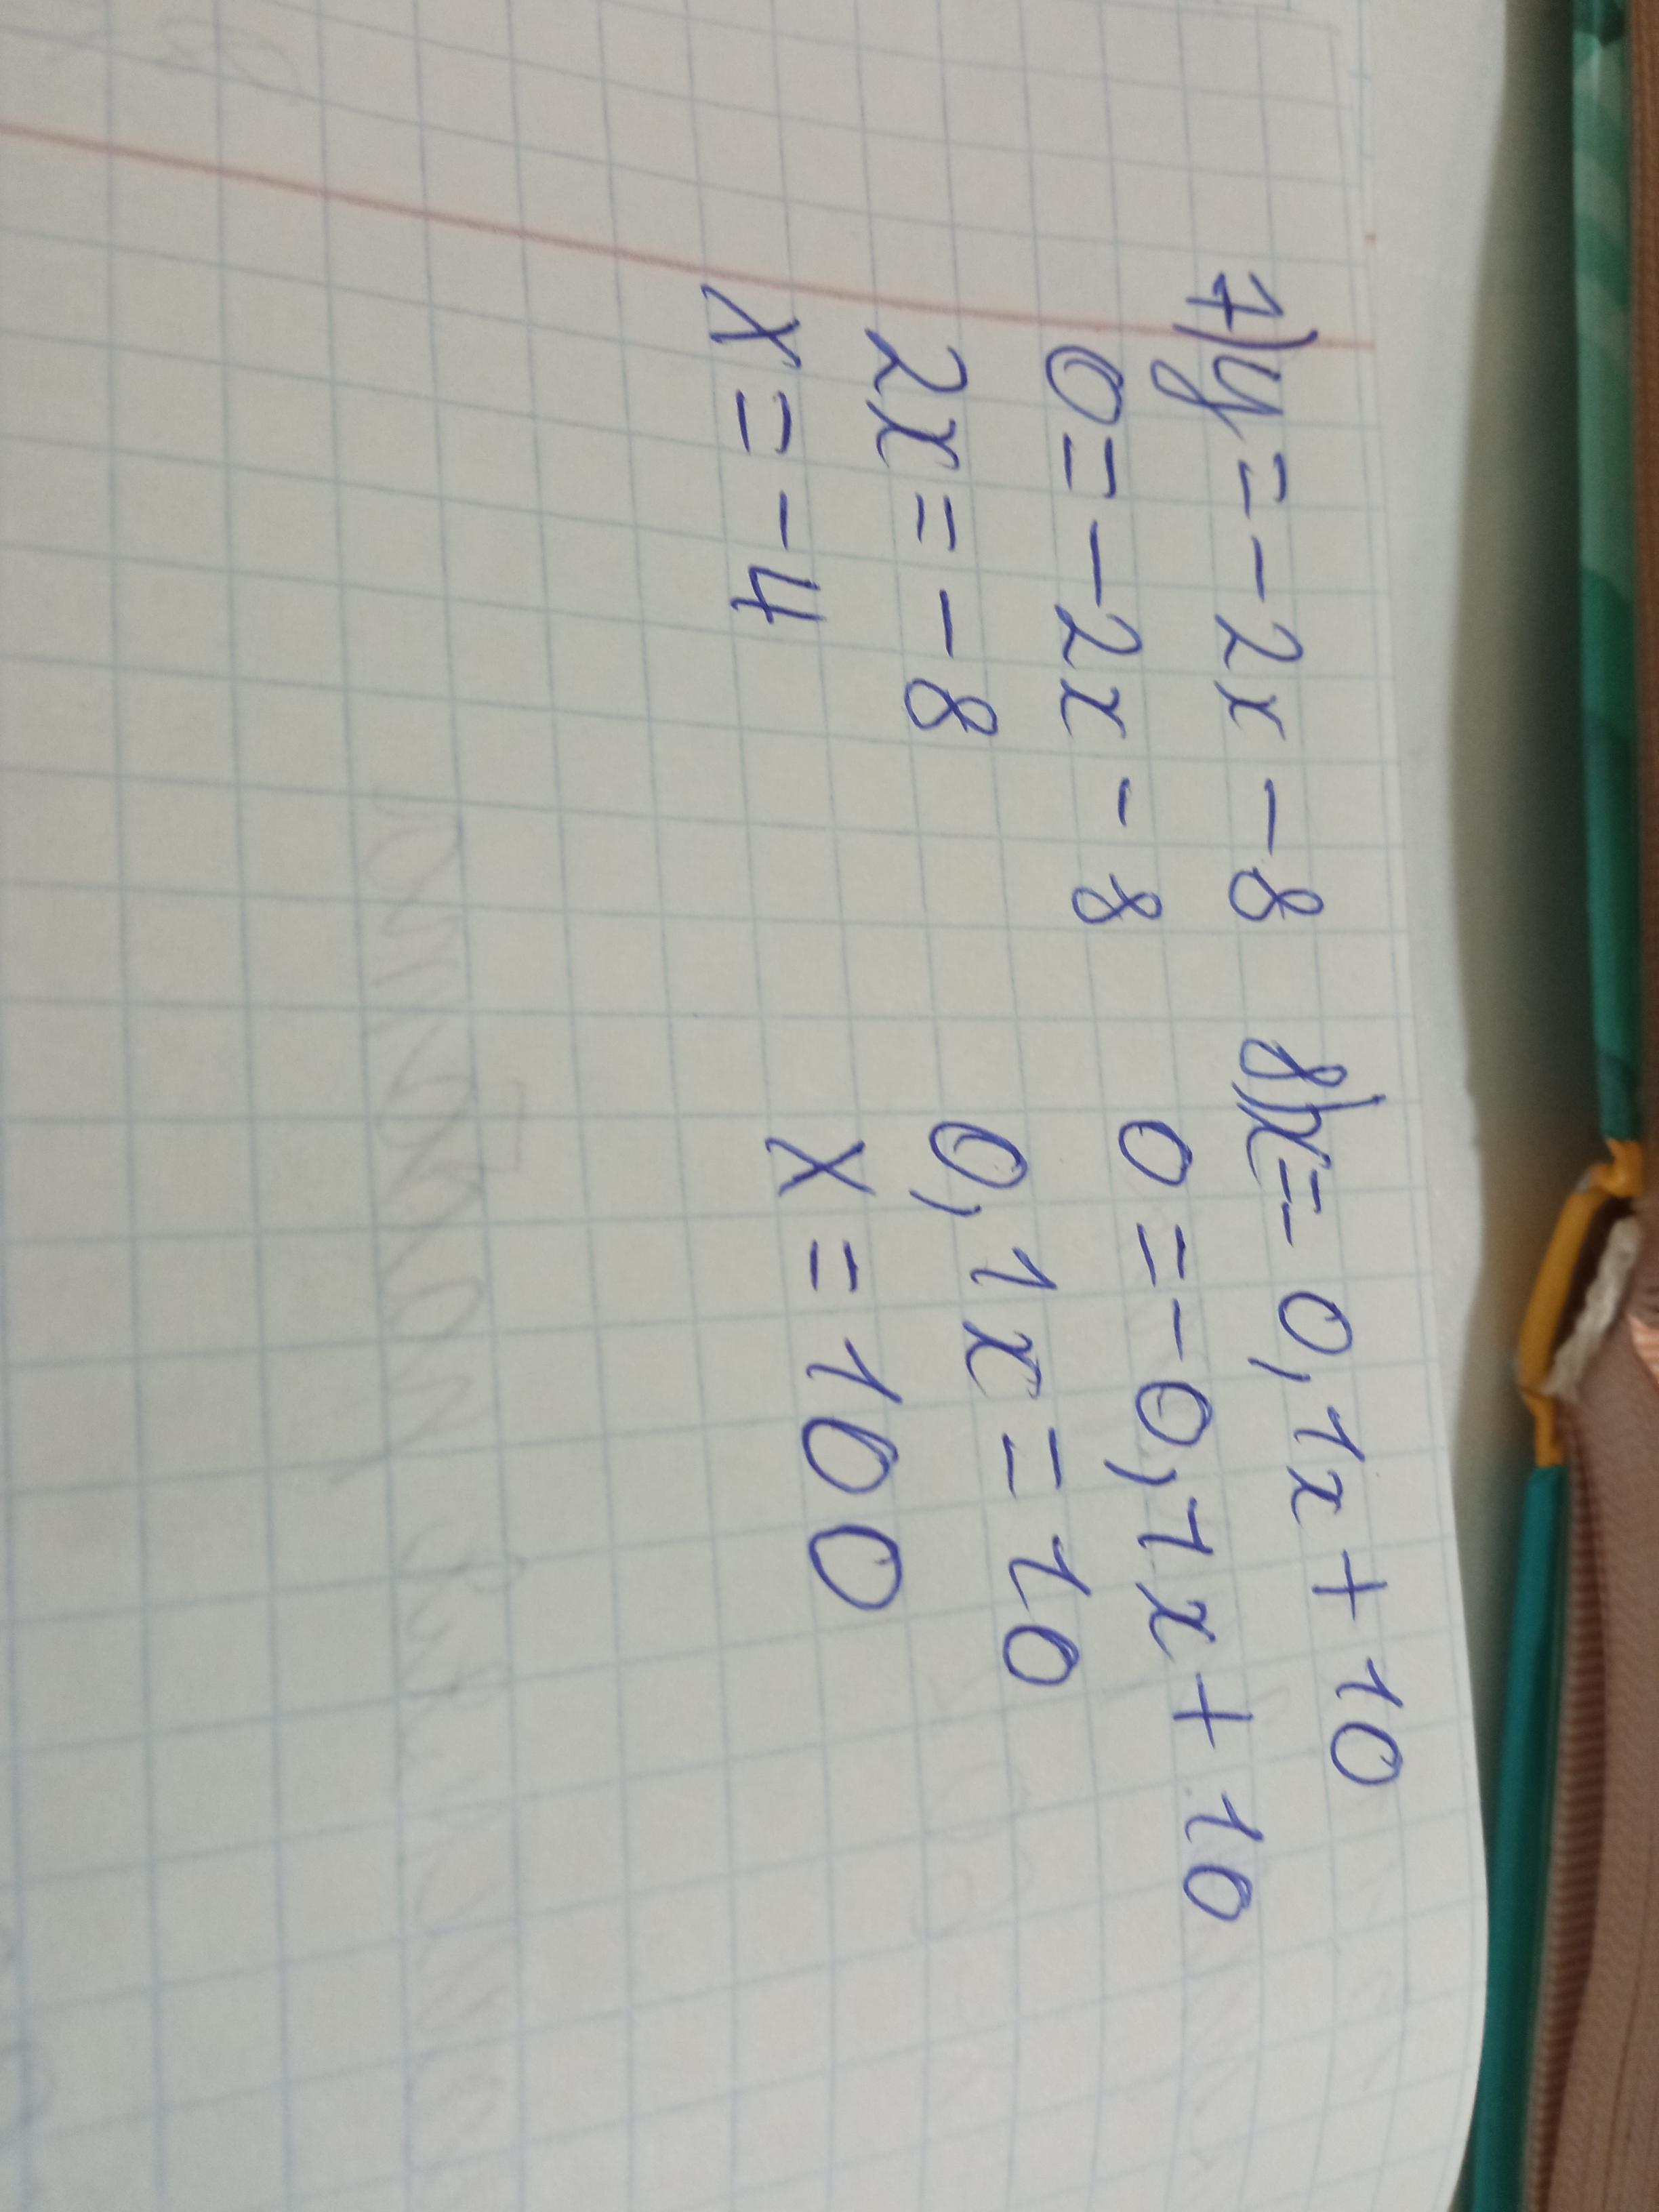 7) y = - 2x - 8
0 = - 2x - 8
2x = - 8
x = - 4
8) x = - 0,1x + 10
0 = - 0,1x + 10
0,1x = 10
x = 100